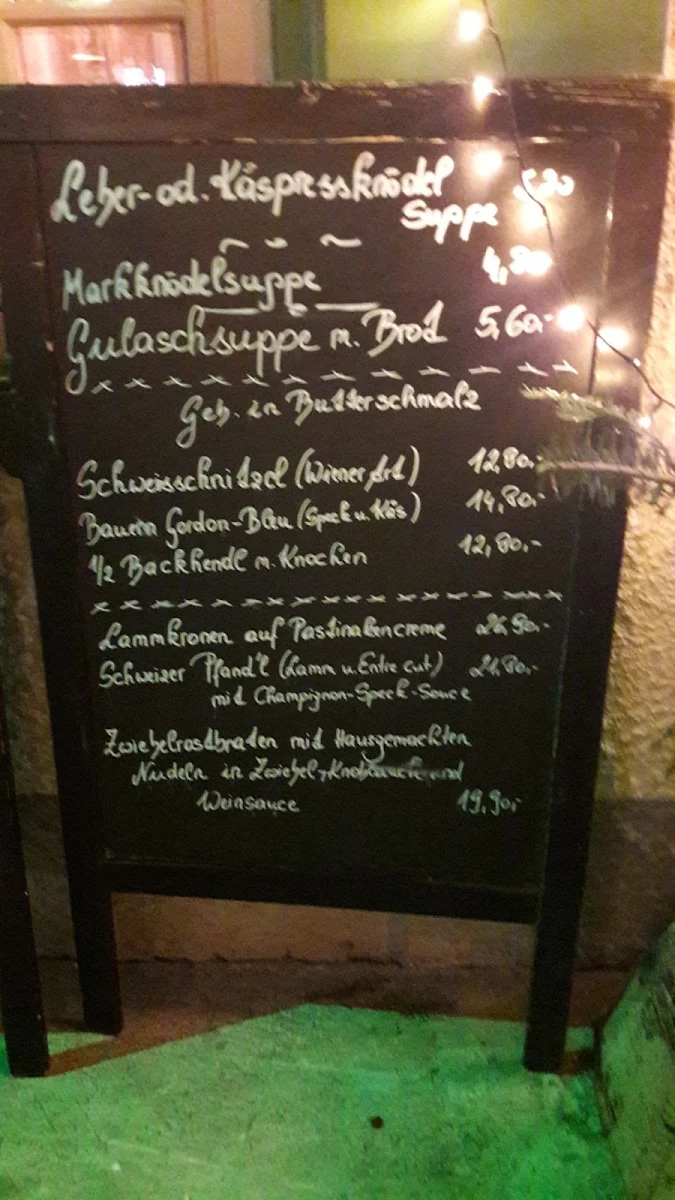 Leber-od. Käspressknödel 5,20
Suppe
Markknödelsuppe 4,80
Gulaschsuppe m. Brot 5,60.-
Geb. in Butterschmalz
Schweisschnitzel (Wiener Art) 12,80.-
Bauern Gordon-Bleu (Speck u. Käs) 14,80.-
1/2 Backhendl m. Knochen 12,80.-
Lammkronen auf Pastinakencreme 26,90.-
Schweizer Pfand'l (Lamm u. Entre cut) 21,80.-
mit Champignon-Speck-Souce
Zwiebelrostbraten mit Hausgemachten
Nudeln in Zwiebel, Knoblauch und
Weinsauce 19,90.-